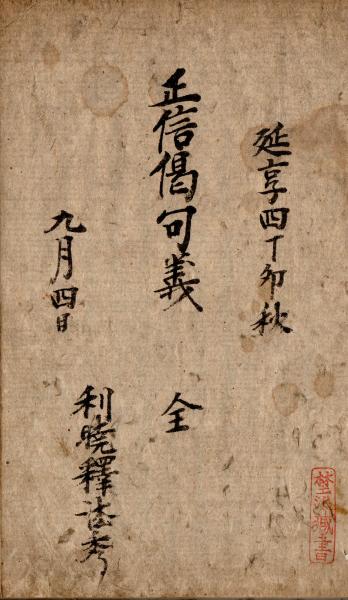 延享四丁卯秋
正信偈句義 全
九月四日
利曉釋法秀
藏書